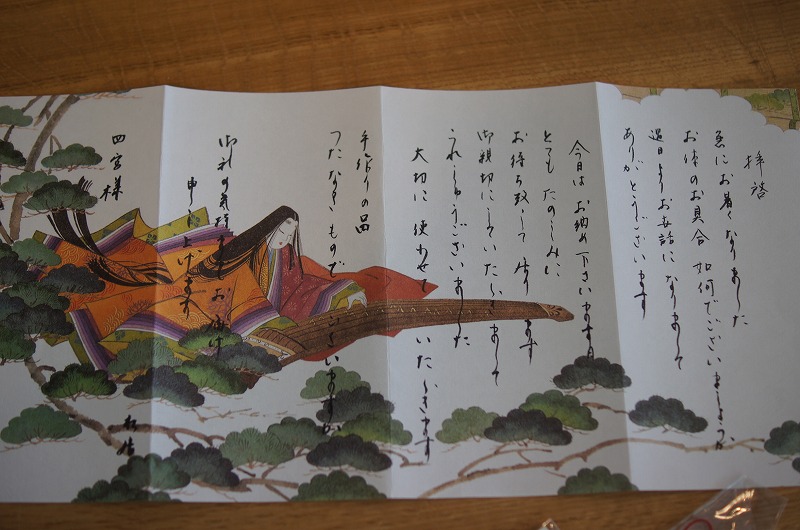 拝啓
急にお暑くなりました
お体のお具合 如何でございましょうか
過日よりお世話になりまして
ありがとうございます
今日は お納め下さいますの
とても たのしみに
お待ち致して 居ります
御親切にしていたゞきまして
うれしゅうございました
大切に 使わせて いたゞきます
手作りの品
つたなきもので ございますが
御礼の気持ちとして お届け
申し上げます
四宮様